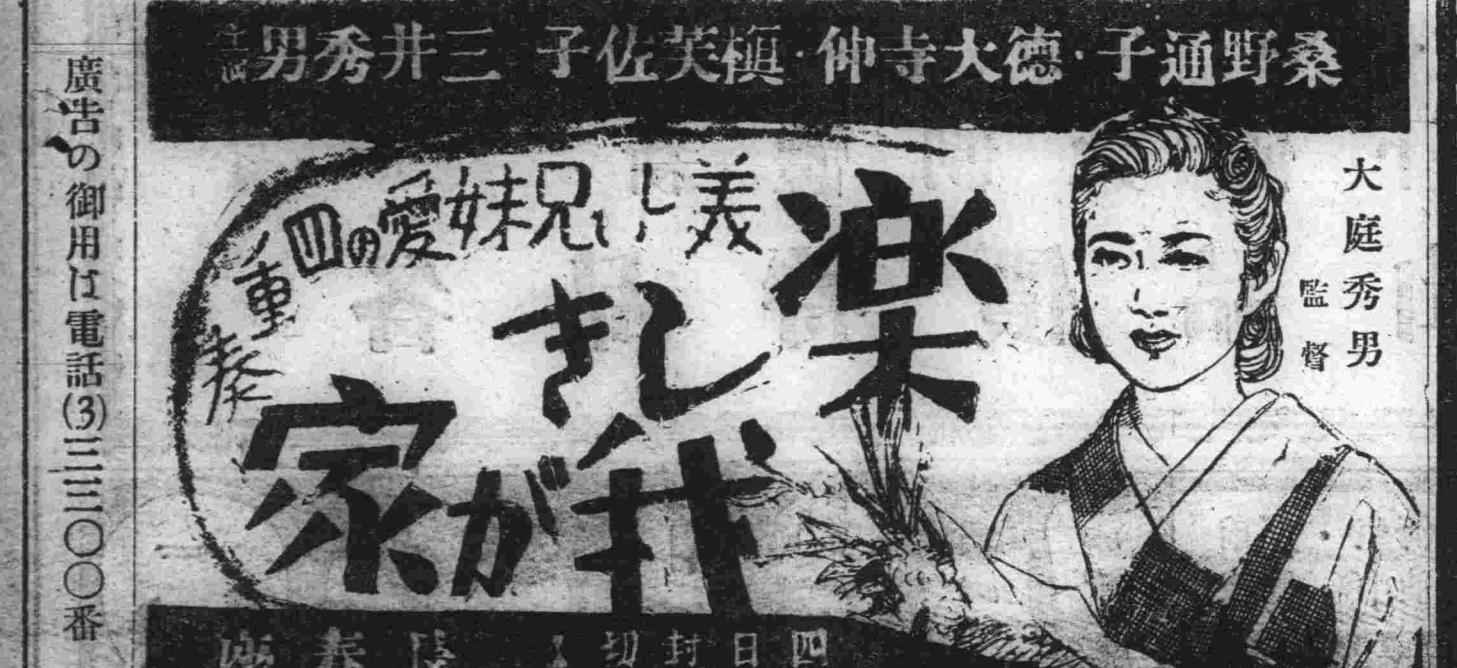 桑野通子・徳大寺伸・槇芙佐子 三井秀男
大庭秀男
監督
義しい兄妹愛の四重奏
楽しき
我が家
四日封切
廣告の御用は電話(3)三三〇〇番